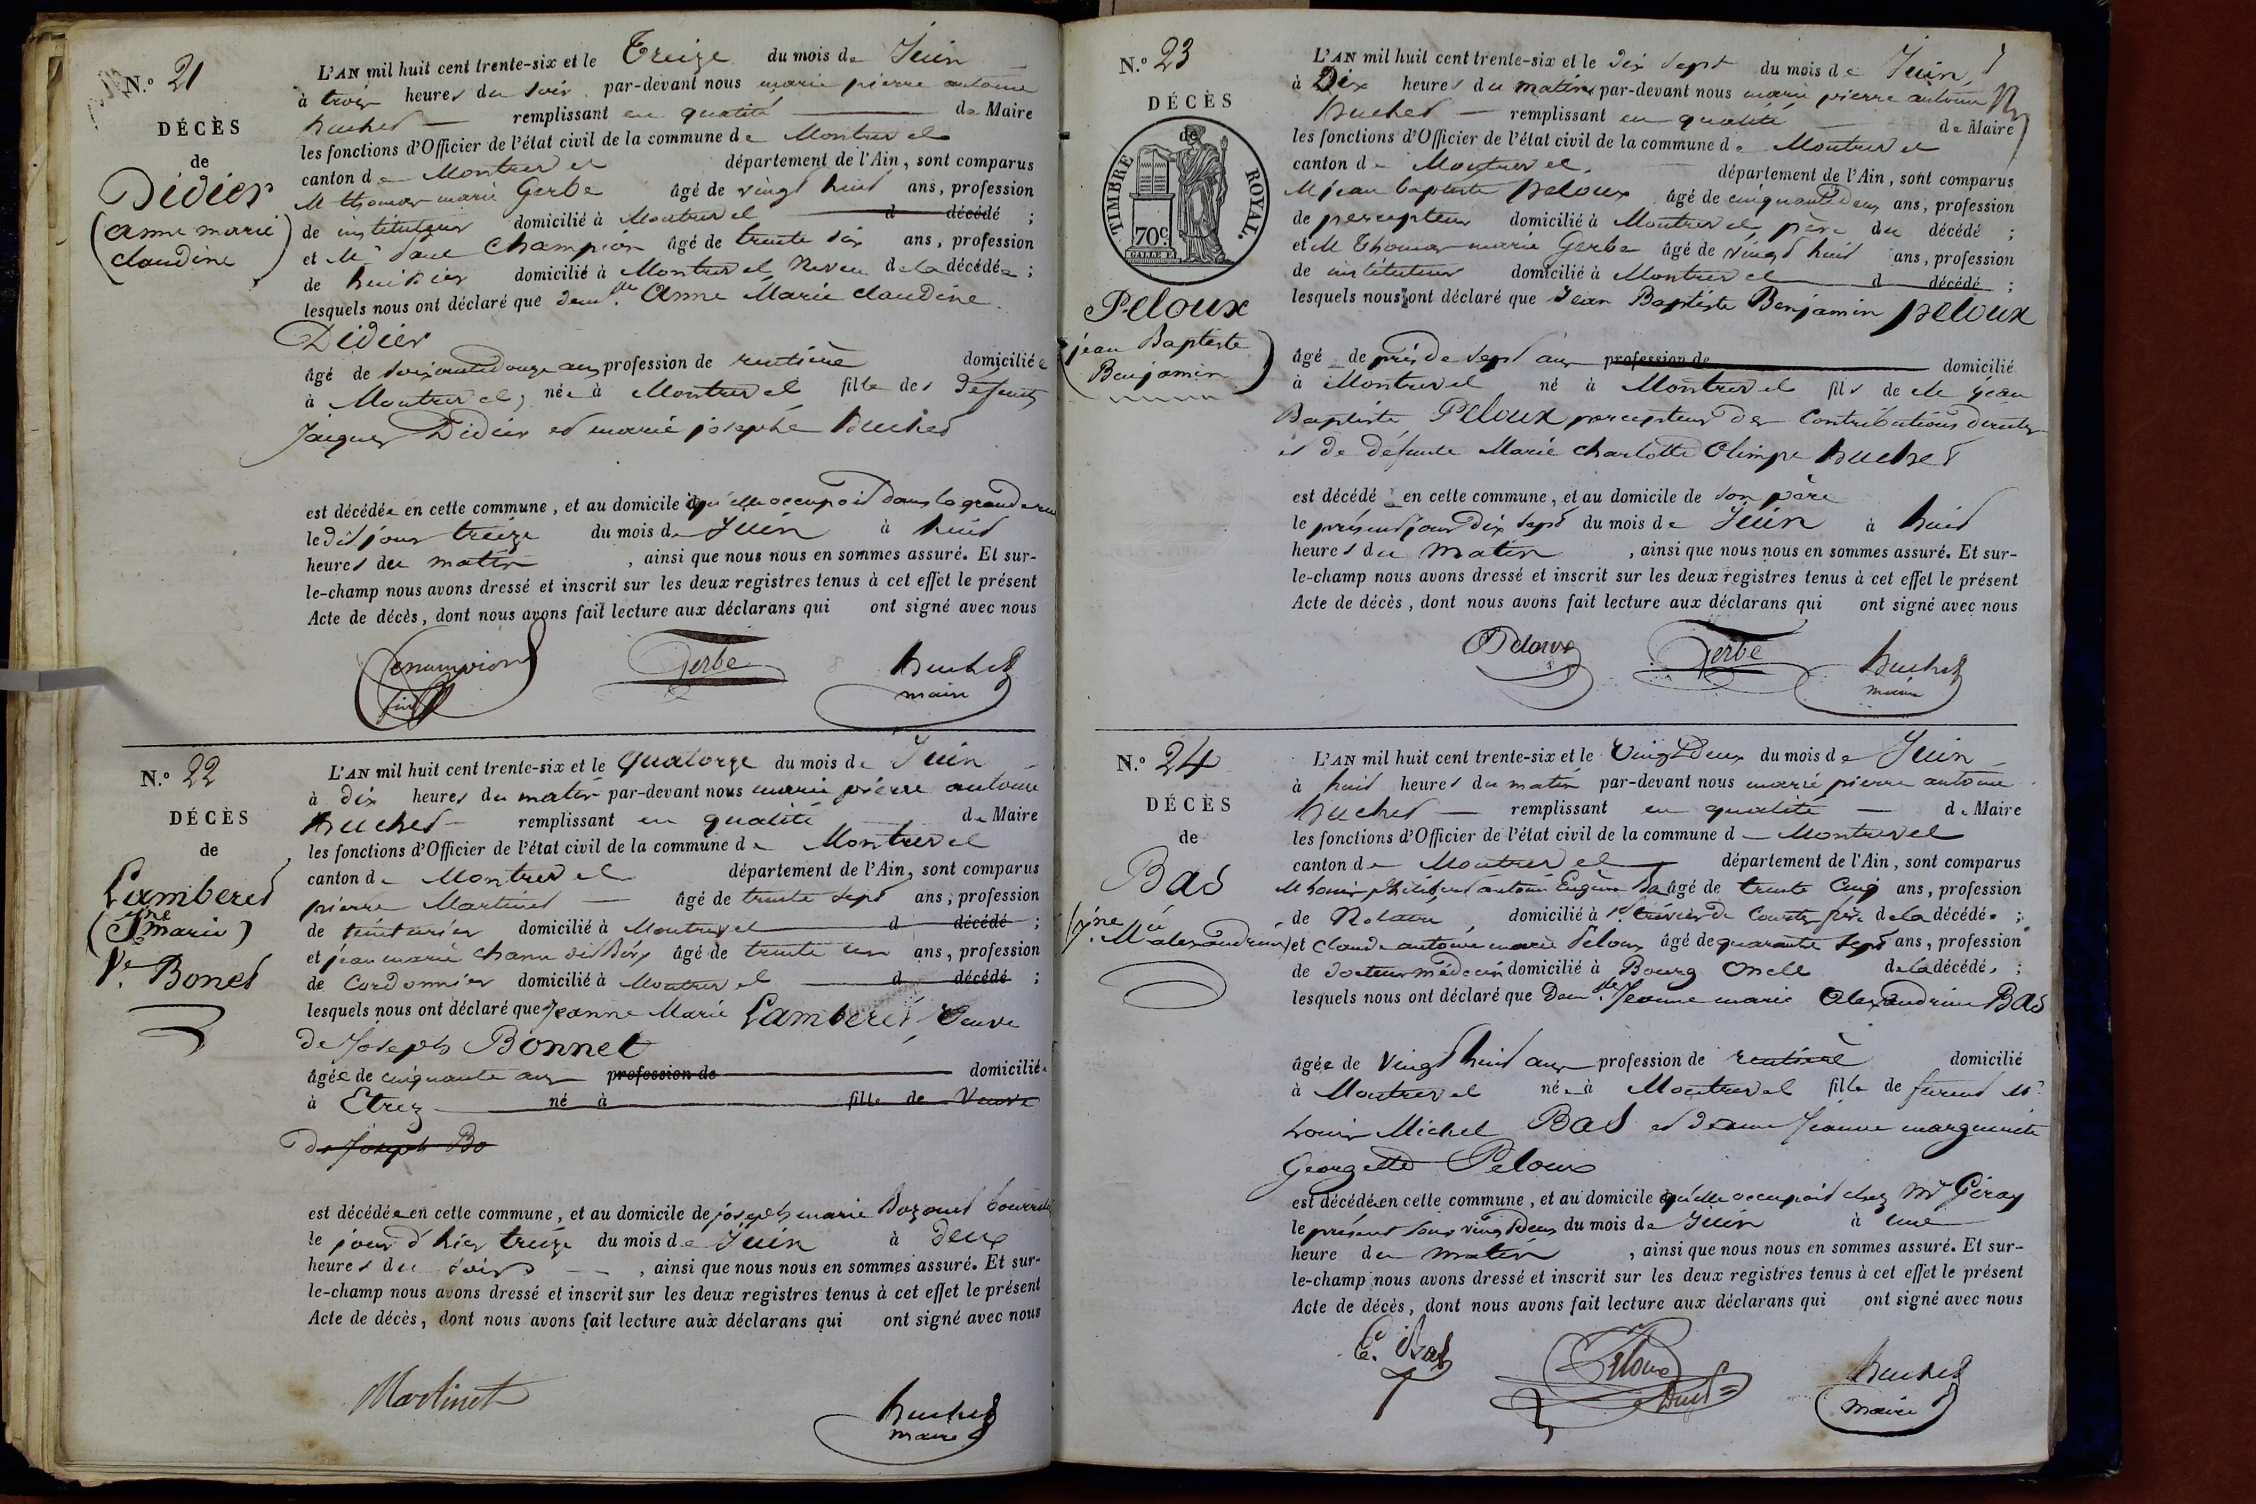 N.º 21
DÉCÈS
de
Didier
(anne marie
claudine)
L'AN mil huit cent trente-six et le Treize du mois de Juin
à trois heures du soir par-devant nous marie pierre antoine
huchet remplissant en qualité de Maire
les fonctions d'Officier de l'état civil de la commune de Montrevel
canton de Montrevel département de l'Ain, sont comparus
M thomas marie Gerbe âgé de vingt huit ans, profession
de instituteur domicilié à Montrevel d décédé ;
et Mr Champion âgé de trente six ans, profession
de huissier domicilié à Montrevel, Neveu de la décédée ;
lesquels nous ont déclaré que demlle Anne Marie claudine
Didier
âgé de soixante douze ans profession de rentière domiciliée
à Montrevel, née à Montrevel fille des défunts
Jacques Didier et marie josephe huchet
est décédée en cette commune, et au domicile qu'elle occupoit dans la grande rue
ledit jour treize du mois de Juin à huit
heures du matin, ainsi que nous nous en sommes assuré. Et sur-
le-champ nous avons dressé et inscrit sur les deux registres tenus à cet effet le présent
Acte de décès, dont nous avons fait lecture aux déclarans qui ont signé avec nous
Champion Gerbe huchet
maire
N.º 22
DÉCÈS
de
Lamberet
(Jne marie)
Ve Bonet
L'AN mil huit cent trente-six et le quatorze du mois de Juin
à dix heures du matin par-devant nous marie pierre antoine
huchet remplissant en qualité de Maire
les fonctions d'Officier de l'état civil de la commune de Montrevel
canton de Montrevel département de l'Ain, sont comparus
pierre Martinet âgé de trente sept ans, profession
de teinturier domicilié à Montrevel d décédé ;
et jean marie âgé de trente un ans, profession
de Cordonnier domicilié à Montrevel d décédé ;
lesquels nous ont déclaré que Jeanne Marie Lamberet Veuve
De Joseph Bonnet
âgée de cinquante ans profession de domiciliée
à Etrez né à fille de Veuve
de Joseph Bo
est décédée en cette commune, et au domicile de joseph marie
le jour d'hier treize du mois de Juin à deux
heures du soir, ainsi que nous nous en sommes assuré. Et sur-
le-champ nous avons dressé et inscrit sur les deux registres tenus à cet effet le présent
Acte de décès, dont nous avons fait lecture aux déclarans qui ont signé avec nous
Martinet huchet
maire
N.º 23
DÉCÈS
de
TIMBRE ROYAL.
70c.
Peloux
(jean Baptiste
Benjamin)
L'AN mil huit cent trente-six et le dix sept du mois de Juin
à Dix heures du matin par-devant nous marie pierre antoine
huchet remplissant en qualité de Maire
les fonctions d'Officier de l'état civil de la commune de Montrevel
canton de Montrevel département de l'Ain, sont comparus
M jean baptiste peloux âgé de cinquante Deux ans, profession
de percepteur domicilié à Montrevel, père du décédé ;
et M Thomas marie Gerbe âgé de vingt huit ans, profession
de instituteur domicilié à Montrevel d décédé ;
lesquels nous ont déclaré que Jean Baptiste Benjamin peloux
âgé de près de sept ans profession de domicilié
à Montrevel né à Montrevel fils de Mr jean
Baptiste Peloux percepteur des Contributions directes
et de défunte Marie Charlotte Olimpe huchet
est décédé en cette commune, et au domicile de son père
le présent jour dix sept du mois de Juin à huit
heures du matin, ainsi que nous nous en sommes assuré. Et sur-
le-champ nous avons dressé et inscrit sur les deux registres tenus à cet effet le présent
Acte de décès, dont nous avons fait lecture aux déclarans qui ont signé avec nous
Peloux Gerbe huchet
maire
N.º 24
DÉCÈS
de
Bas
(Jne Mie alexandrine)
L'AN mil huit cent trente-six et le Vingt Deux du mois de Juin
à huit heures du matin par-devant nous marie pierre antoine
huchet remplissant en qualité de Maire
les fonctions d'Officier de l'état civil de la commune d Montrevel
canton de Montrevel département de l'Ain, sont comparus
M Louis philibert antoine Eugène Bas âgé de trente Cinq ans, profession
de Notaire domicilié à St trivier de Courtes frère de la décédée ;
et Claude antoine marie Peloux âgé de quarante sept ans, profession
de docteur médecin domicilié à Bourg Oncle de la décédée ;
lesquels nous ont déclaré que Demlle Jeanne marie Alexandrine Bas
âgée de Vingt huit ans profession de rentière domicilié
à Montrevel née à Montrevel fille de furent Mr
Louis Michel Bas et dame Jeanne marguerite
Georgette Peloux
est décédée en cette commune, et au domicile qu'elle occupoit chez Mr
le présent jour vingt Deux du mois de Juin à une
heure du matin, ainsi que nous nous en sommes assuré. Et sur-
le-champ nous avons dressé et inscrit sur les deux registres tenus à cet effet le présent
Acte de décès, dont nous avons fait lecture aux déclarans qui ont signé avec nous
E. Bas Peloux huchet
maire